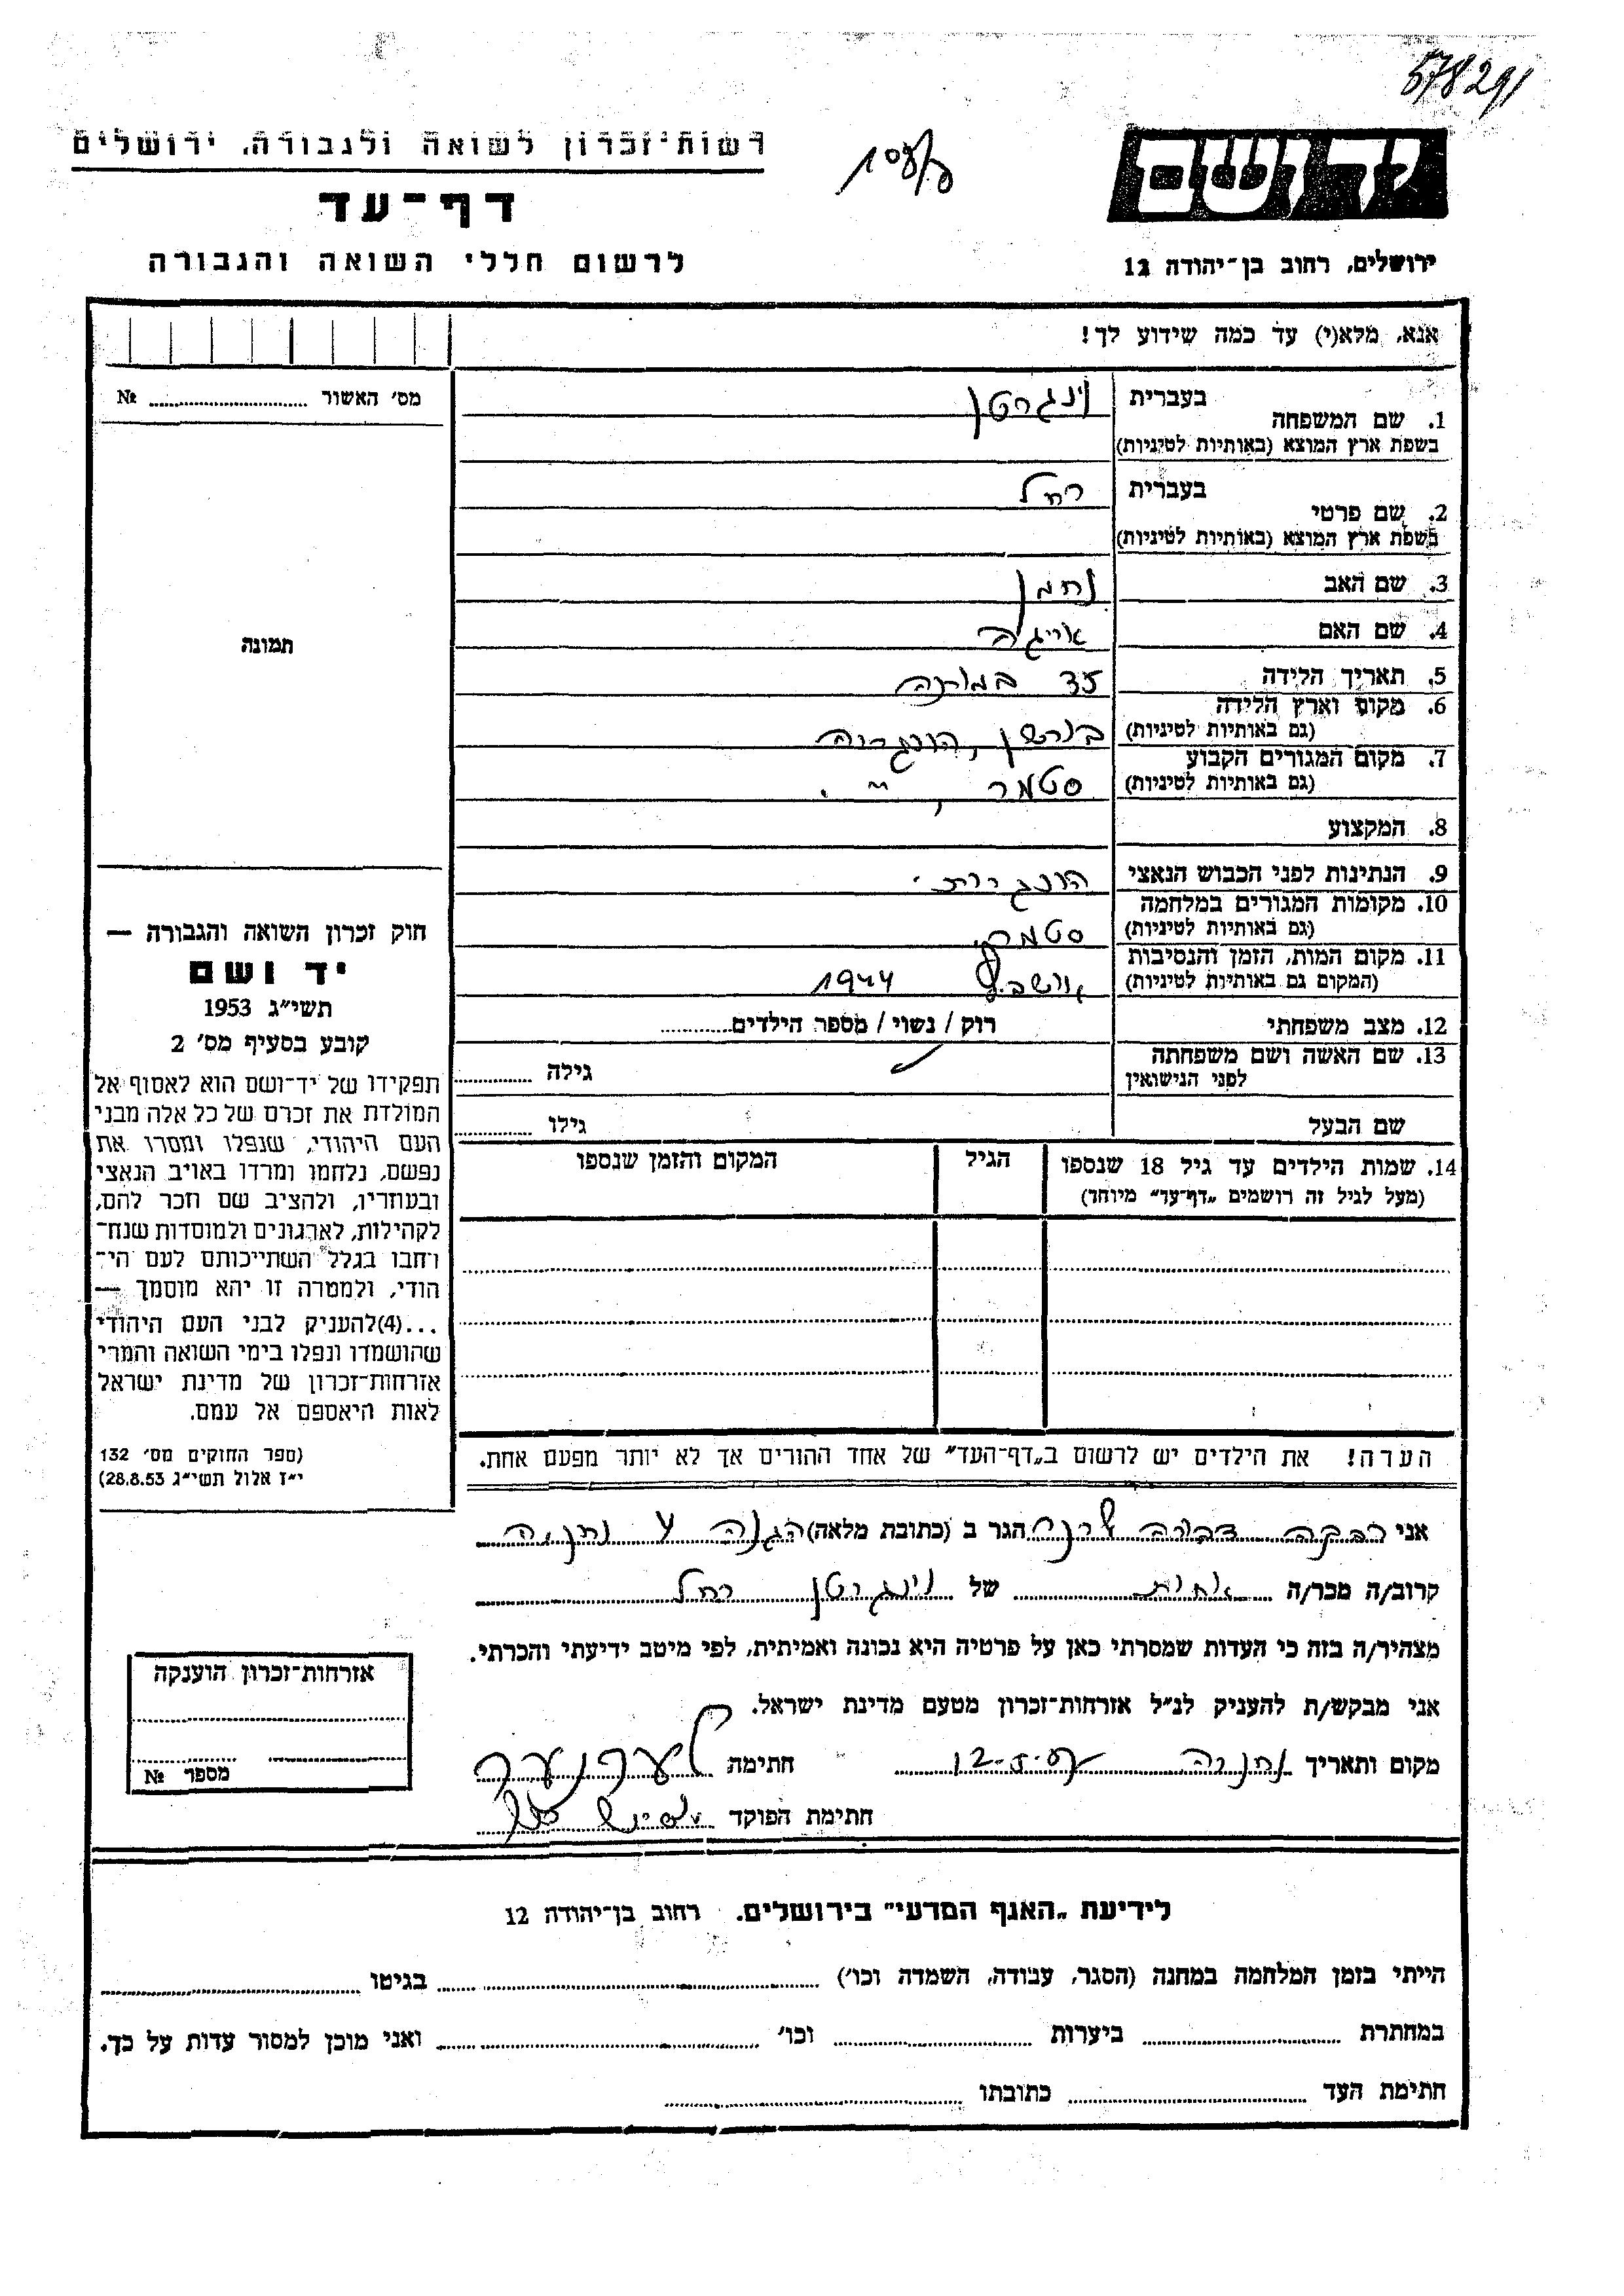 578291
רשות־זכרון לשואה ולגבורה, ירושלים
יד ושם
דף־עד
לרשום חללי השואה והגבורה
ירושלים, רחוב בן־יהודה 12
אנא, מלא(י) עד כמה שידוע לך!
מס׳ האשור № 
1. שם המשפחה בעברית וינגרטן
בשפת ארץ המוצא (באותיות לטיניות)
2. שם פרטי בעברית רחל
בשפת ארץ המוצא (באותיות לטיניות)
תמונה
3. שם האב נחמן
4. שם האם
5. תאריך הלידה 35 במותה
6. מקום וארץ הלידה (גם באותיות לטיניות) הונגריה
7. מקום המגורים הקבוע (גם באותיות לטיניות) סטמר, ״.
8. המקצוע
9. הנתינות לפני הכבוש הנאצי הונגרית.
10. מקומות המגורים במלחמה (גם באותיות לטיניות) סטמר.
11. מקום המות, הזמן והנסיבות (המקום גם באותיות לטיניות) אושביץ 1944
12. מצב משפחתי רוק / נשוי / מספר הילדים
13. שם האשה ושם משפחתה לפני הנישואין גילה
שם הבעל גילו
14. שמות הילדים עד גיל 18 שנספו הגיל המקום והזמן שנספו
(מעל לגיל זה רושמים „דף־עד״ מיוחד)
חוק זכרון השואה והגבורה —
יד ושם
תשי״ג 1953
קובע בסעיף מס׳ 2
תפקידו של יד־ושם הוא לאסוף אל
המולדת את זכרם של כל אלה מבני
העם היהודי, שנפלו ומסרו את
נפשם, נלחמו ומרדו באויב הנאצי
ובעוזריו, ולהציב שם וזכר להם,
לקהילות, לארגונים ולמוסדות שנח־
רחבו בגלל השתייכותם לעם הי־
הודי, ולמטרה זו יהא מוסמך —
...(4)להעניק לבני העם היהודי
שהושמדו ונפלו בימי השואה והמרי
אזרחות־זכרון של מדינת ישראל
לאות היאספם אל עמם.
(ספר החוקים מס׳ 132
י״ז אלול תשי״ג 28.8.53)
הערה! את הילדים יש לרשום ב„דף־העד״ של אחד ההורים אך לא יותר מפעם אחת.
אני רבקה דבורה לרנר הגר ב (כתובת מלאה) הגנה נתניה
קרוב/ה מכר/ה אחות של וינגרטן רחל
מצהיר/ה בזה כי העדות שמסרתי כאן על פרטיה היא נכונה ואמיתית, לפי מיטב ידיעתי והכרתי.
אני מבקש/ת להעניק לנ״ל אזרחות־זכרון מטעם מדינת ישראל.
מקום ותאריך נתניה חתימה לערנער
חתימת הפוקד
אזרחות־זכרון הוענקה
מספר №
לידיעת „האגף המדעי״ בירושלים. רחוב בן־יהודה 12
הייתי בזמן המלחמה במחנה (הסגר, עבודה, השמדה וכו׳) בגיטו
במחתרת ביערות וכו׳ ואני מוכן למסור עדות על כך.
חתימת העד כתובתו